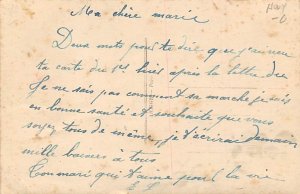 Ma chère marie
Deux mots pour te dire que j'ai reçu
ta carte du 1er hier après la lettre du
Je ne sais pas comment sa marche je suis
en bonne santé et souhaite que vous
soyez tous de même, je t'écrirai demain
mille baisers à tous
Ton mari qui t'aime pour la vie